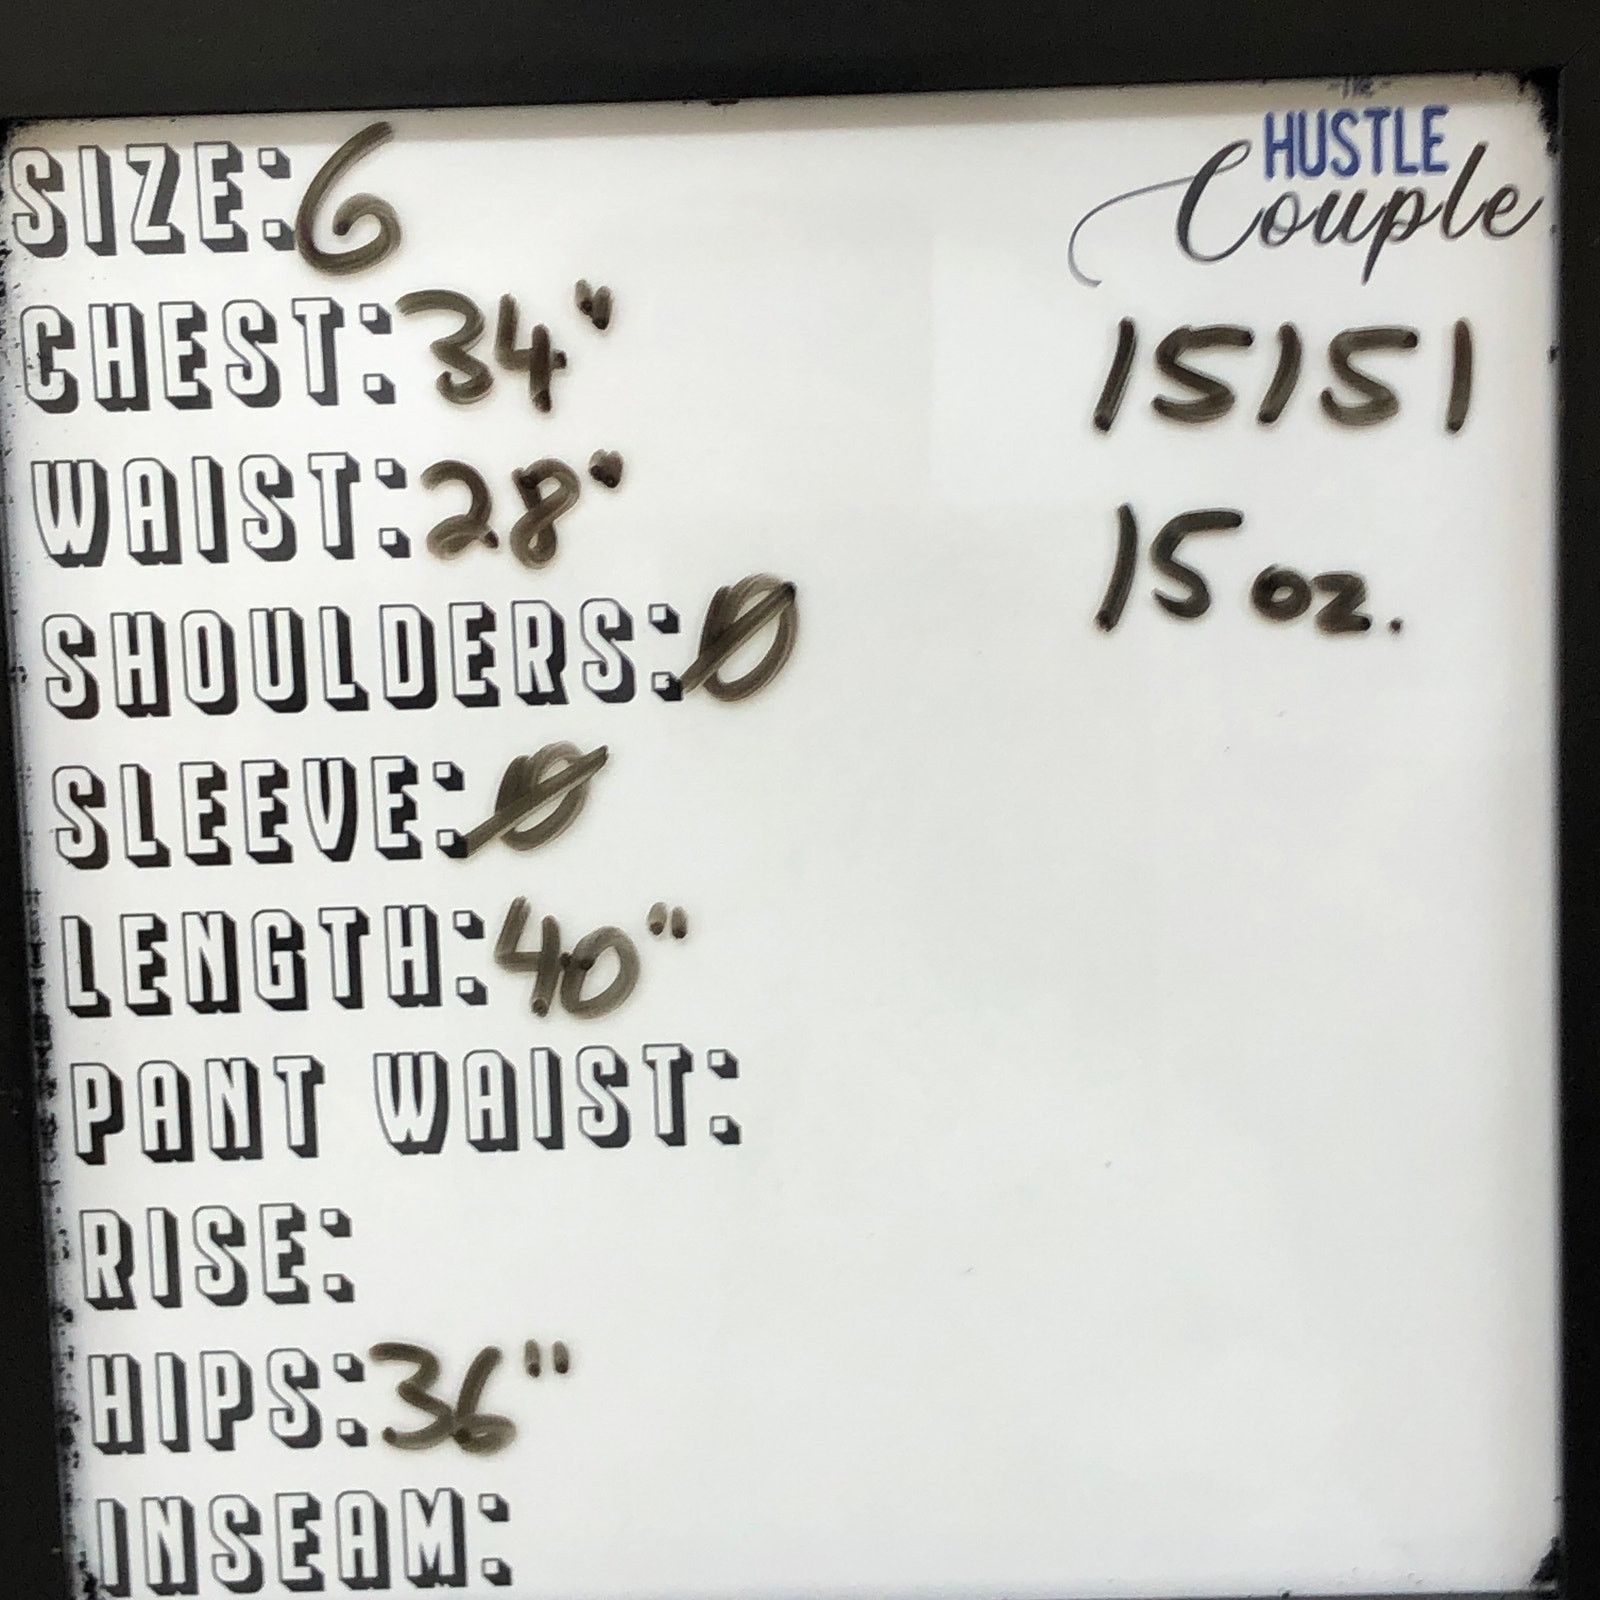 The
HUSTLE
Couple
SIZE: 6
CHEST: 34"
15151
WAIST: 28"
15 oz.
SHOULDERS: Ø
SLEEVE: Ø
LENGTH: 40"
PANT WAIST:
RISE:
HIPS: 36"
INSEAM: